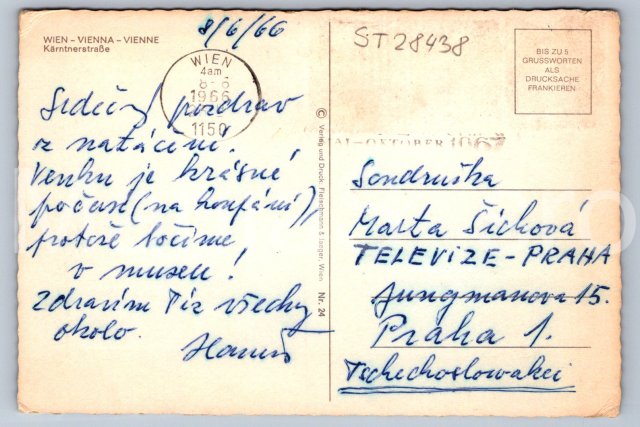 WIEN – VIENNA – VIENNE
Kärntnerstraße
8/6/66
ST 28438
WIEN
4am
8–6
1966
1150
BIS ZU 5
GRUSSWORTEN
ALS
DRUCKSACHE
FRANKIEREN
Srdečný pozdrav
z natáčení.
Venku je krásné
počasí (na koupání),
protože točíme
v museu!
Zdravím Tě i všechny
okolo.
Hanuš
© Verlag und Druck Fleischmann & Jaeger, Wien Nr. 24
OKTOBER 1967
Soudružka
Marta Šícková
TELEVIZE – PRAHA
Jungmanova 15.
Praha 1.
Tschechoslowakei